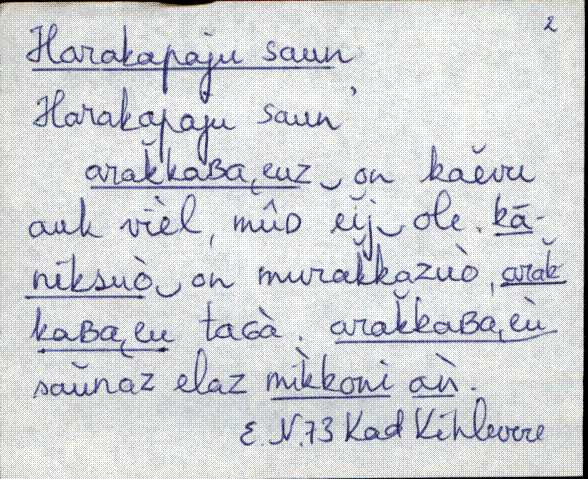 2
Harakapaju saun
Harakapaju saun'
arak̆kaʙa͔euz‿on kaĕvu
auk vièl, mûᴅ eĭj‿ole. kā-
niksuò‿on murak̆kazuò, arak̆
kaʙa͔eu taGà. arak̆kaʙa͔eù
saŭnaz elaz mìkkoni aǹ.
E. N. 73 Kad Kihlevere